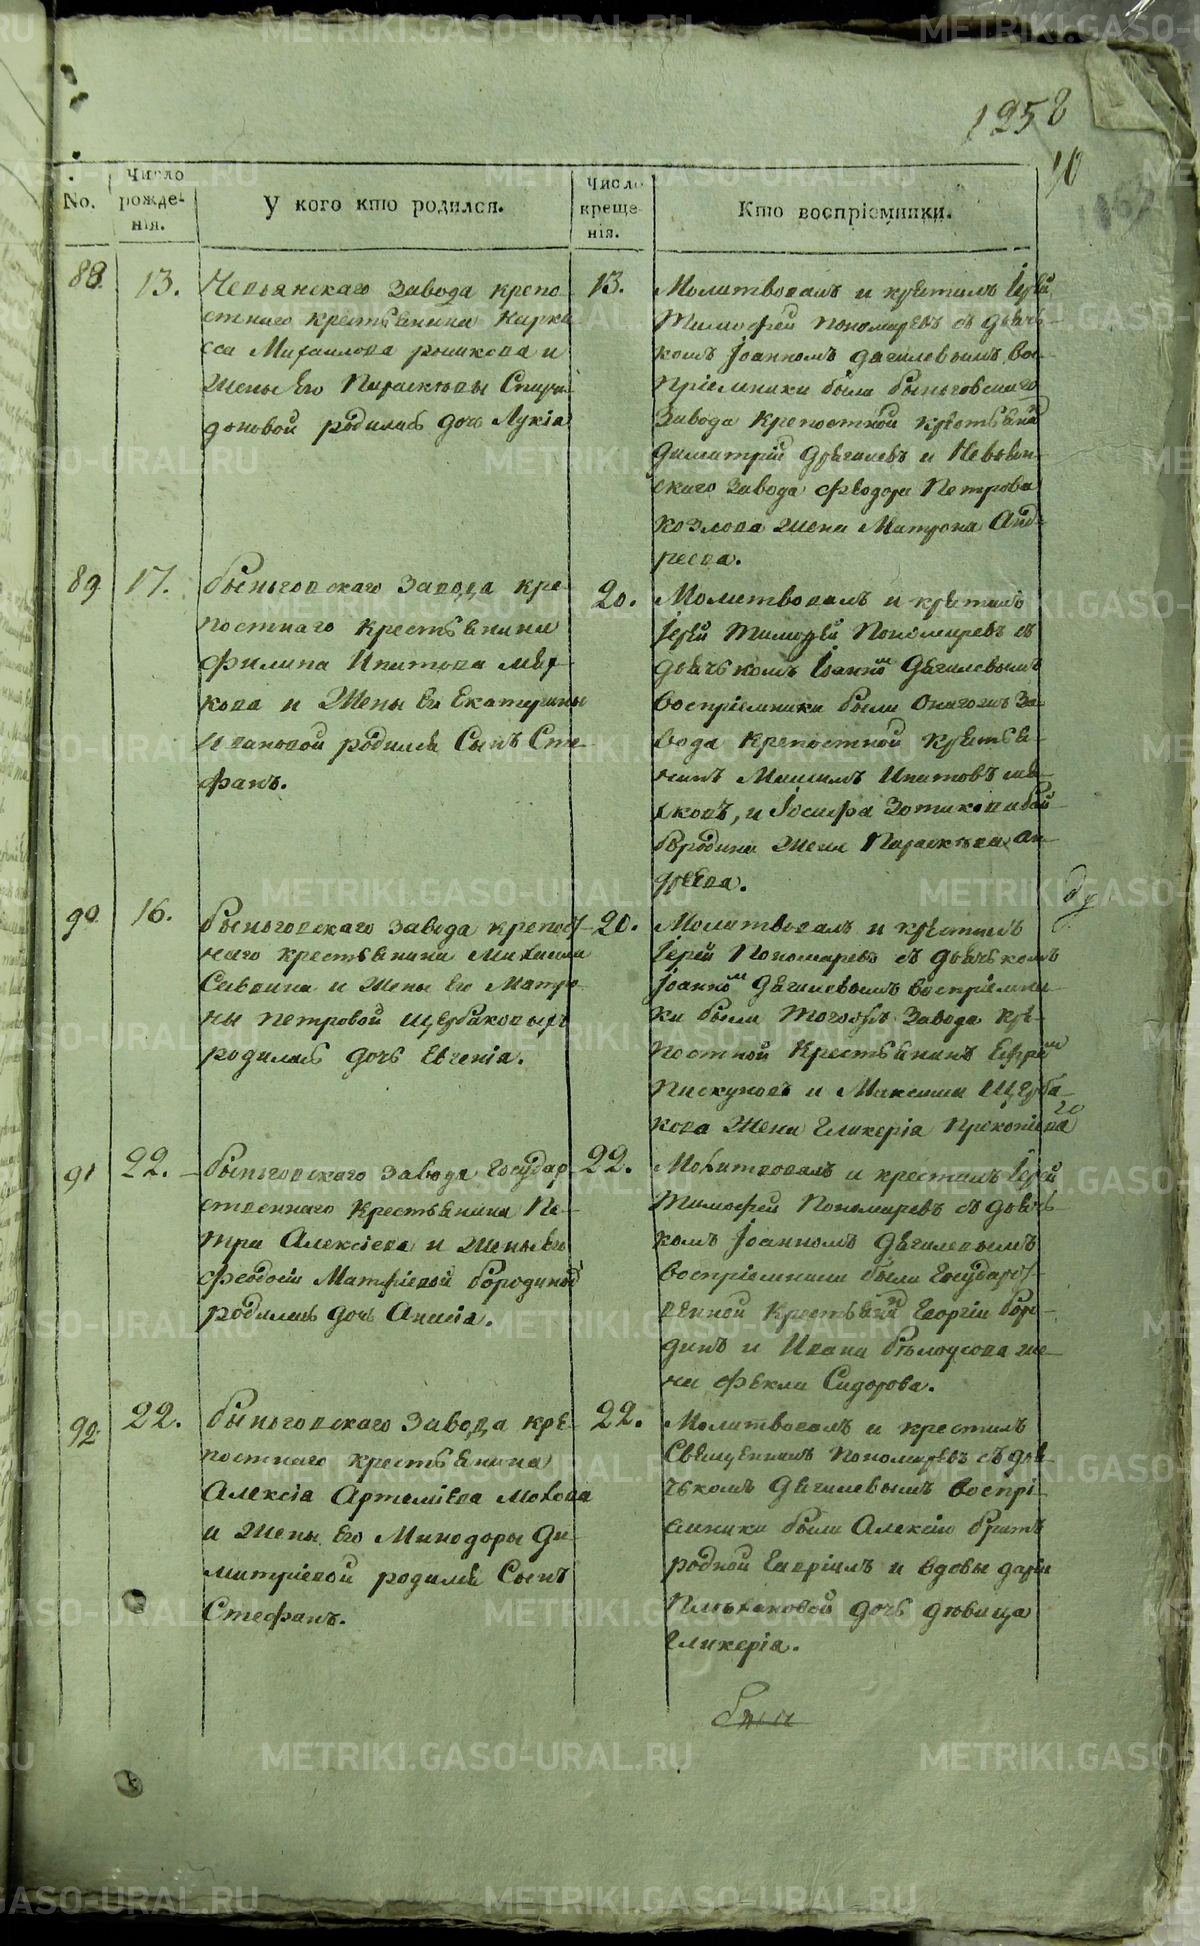 1258
10
No.
Число рожденія.
У кого кто родился.
Число крещенія.
Кто воспріемники.
88.
13.
Невьянскаго завода крепо
стнаго крестьянина Нарки
сса Михаилова и
жены Его Параскевы Спири
доновой родилась дочь Лукіа
13.
Молитвовалъ и крестилъ Іерей
Тимофей Пономаревъ съ дьяч
комъ Іоанномъ Дягилевымъ вос
пріемники были быньговскаго
завода крепостной крестьянин
Димитрій Дягилевъ и Невьян
скаго завода Феодора Петрова
козлова жена Матрона Анд
реева.
89
17.
быньговскаго завода кре
постнаго крестьянина
Филипа Ипатова
и жены Ег Екатерины
Ивановой родился Сынъ Сте
фанъ.
20.
Молитвовалъ и крстилъ
Іерей Тимофей Пономаревъ съ
дьячькомъ Іоанномъ Дягилевымъ
воспріемники были Онагожъ за
вода крепостной крестья
нинъ Ипатовъ
и Іосифа
бородина жена Параскева Ан
дреева.
90
16.
быньговскаго завода крепос
наго крестьянина Михаила
Саввина и жены Его Матро
ны петровой щербаковыхъ
родилась дочь Евгенія.
20.
Молитвовалъ и крестилъ
Іерей Пономаревъ съ дьячькомъ
Іоанномъ Дягилевымъ воспріемни
ки были тогожъ завода кре
постной крестьянинъ Ефрем
Пискуновъ и Максима Щерба
кова жена Гликерія Прокопіева
91
22.
быньговскаго завода государ
ственнаго крестьянина Пе
тра Алексіева и жены Его
Феодосіи Матфіевой бородиной
родилась дочь Анисіа.
22.
Молитвовалъ и крестилъ Іерей
Тимофей Пономаревъ съ дьячь
комъ Іоанномъ Дягилевымъ
воспріемники были государст
венной крестьянин Георгіи боро
динъ и Ивана бѣлоусова же
на Фекла Сидорова.
92
22.
быньговскаго завода кре
постнаго крестьянина
Алексіа Артеміева Мохова
и жены Его Минодоры Ди
митріевой родился Сынъ
Стефанъ.
22.
Молитвовалъ и крестилъ
Священникъ Пономаревъ съ дья
чькомъ Дягилевымъ воспрі
емники были Алексію братъ
родной Гавріилъ и вдовы дарьи
дочь дѣвица
Гликеріа.
METRIKI.GASO-URAL.RU